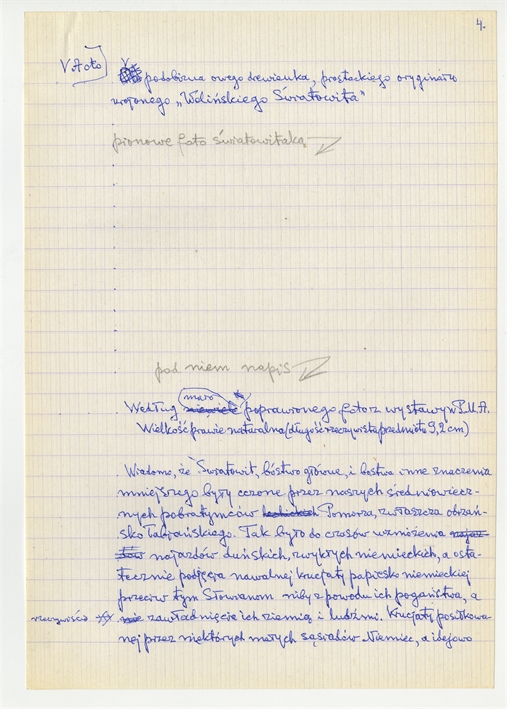 4.
V. A oto podobizna owego drewienka, prostackiego oryginału
urojonego „Wolińskiego Światowita"
pionowe foto światowitaką
pod niem napis
mało
Według poprawionego foto z wystawy w P.M.A.
Wielkość prawie naturalna (długość rzeczywista przedmiotu 9,2 cm)
Wiadomo, że Światowit, bóstwo główne, i bóstwa inne znaczenia
mniejszego były czczone przez naszych średniowiecz-
nych pobratymców Pomorza, zwłaszcza obrzań-
sko łabiańskiego. Tak było do czasów wzmożenia
najazdów duńskich, zwykłych niemieckich, a osta-
tecznie podjęcia nawalnej krucjaty papiesko niemieckiej
przeciw tym Słowianom niby z powodu ich pogaństwa, a
rzeczywiście zawładnięcie ich ziemią i ludźmi. Krucjaty posiłkowa-
nej przez niektórych małych sąsiadów Niemiec, a ideowo